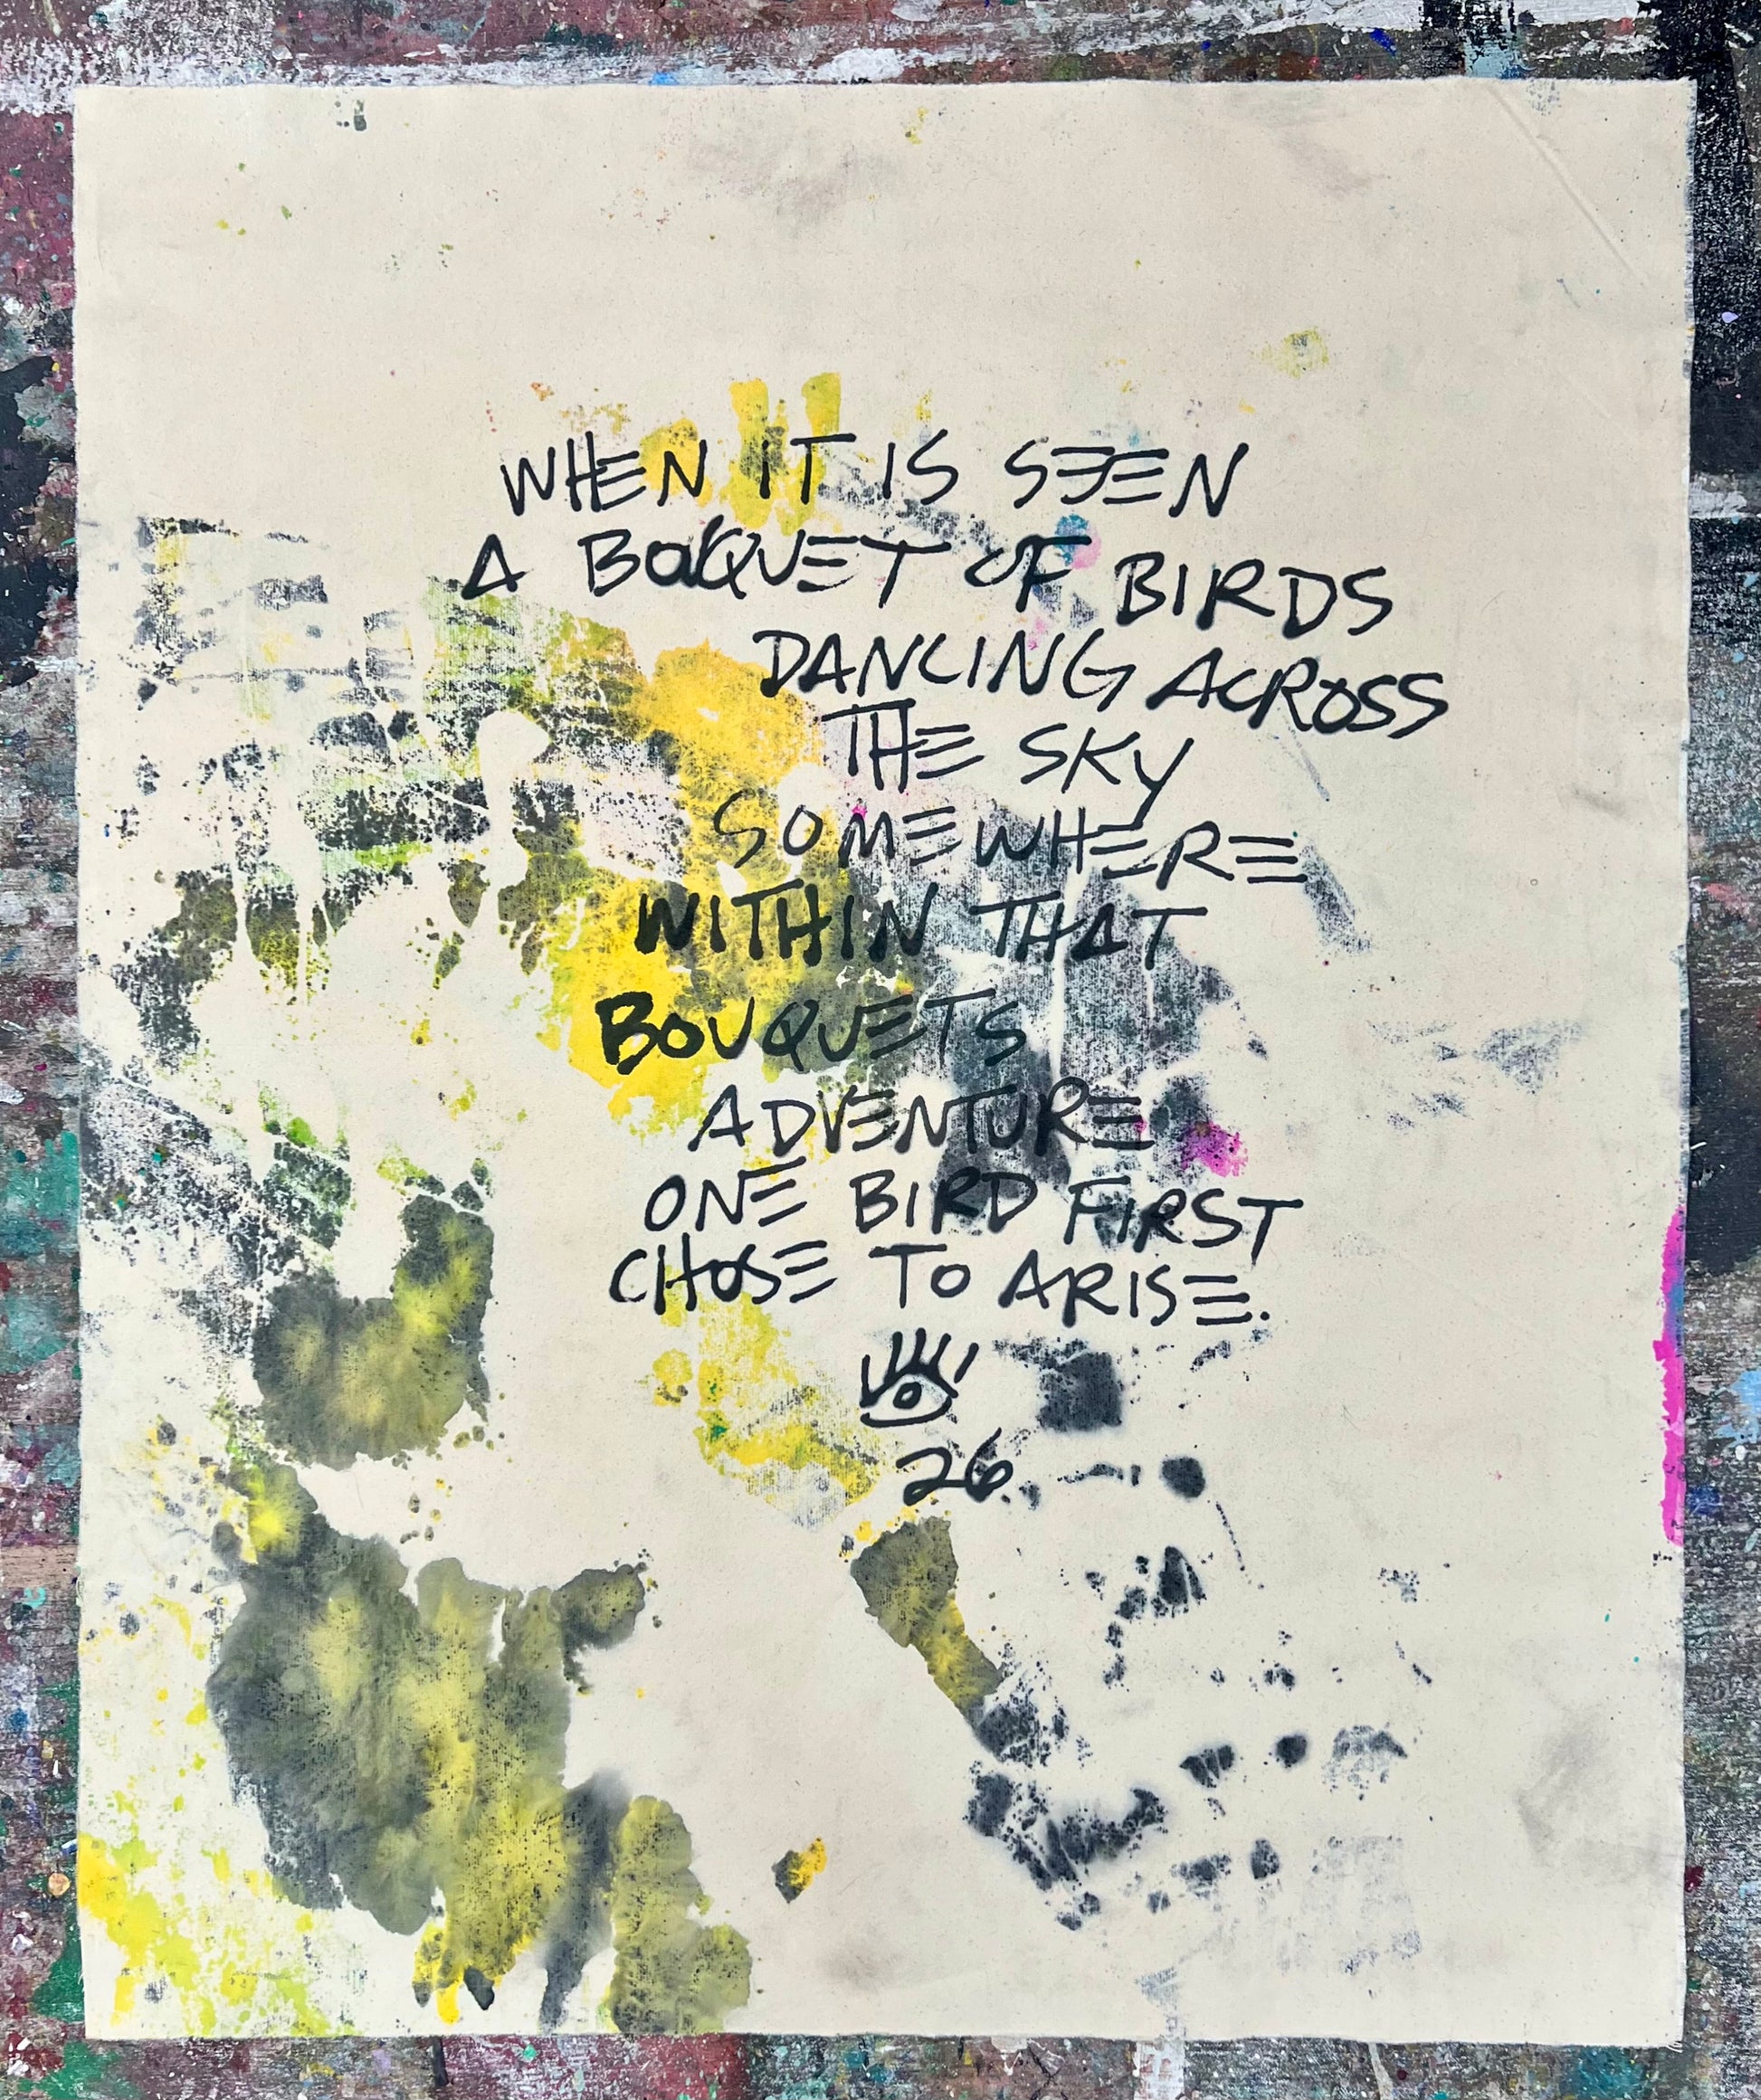 WHEN IT IS SEEN
A BOUQUET OF BIRDS
DANCING ACROSS
THE SKY
SOMEWHERE
WITHIN THAT
BOUQUETS
ADVENTURE
ONE BIRD FIRST
CHOSE TO ARISE.
26